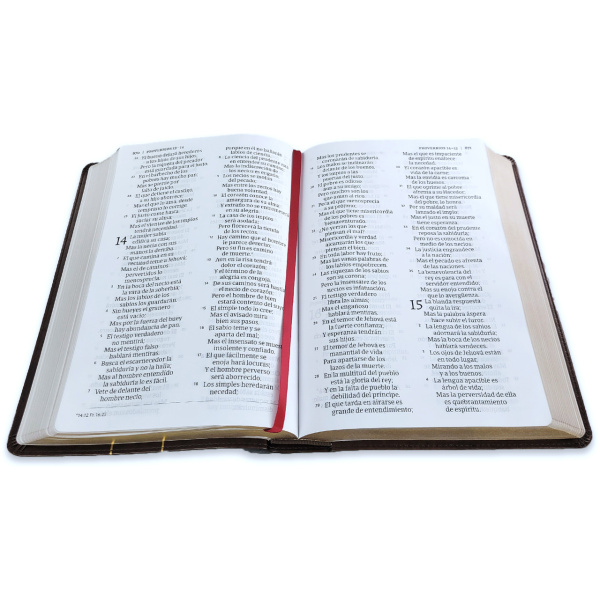 PROVERBIOS 13–14
El bueno dejará herederos
a los hijos de sus hijos;
Pero la riqueza del pecador
está guardada para el justo.
En el barbecho de los
pobres hay mucho pan;
Mas se pierde por
falta de juicio.
El que detiene el castigo,
a su hijo aborrece;
Mas el que lo ama, desde
temprano lo corrige.
El justo come hasta
saciar su alma;
Mas el vientre de los impíos
tendrá necesidad.
14 La mujer sabia
edifica su casa;
Mas la necia con sus
manos la derriba.
El que camina en su
rectitud teme a Jehová;
Mas el de caminos
pervertidos lo
menosprecia.
En la boca del necio está
la vara de la soberbia;
Mas los labios de los
sabios los guardarán.
Sin bueyes el granero
está vacío;
Mas por la fuerza del buey
hay abundancia de pan.
El testigo verdadero
no mentirá;
Mas el testigo falso
hablará mentiras.
Busca el escarnecedor la
sabiduría y no la halla;
Mas al hombre entendido
la sabiduría le es fácil.
7 Vete de delante del
hombre necio,
Porque en él no hallarás
labios de ciencia.
La ciencia del prudente está
en entender su camino;
Mas la indiscreción de
los necios es engaño.
Los necios se mofan
del pecado;
Mas entre los rectos hay
buena voluntad.
El corazón conoce la
amargura de su alma;
Y extraño no se entremeterá
en su alegría.
La casa de los impíos
será asolada;
Pero florecerá la tienda
de los rectos.
Hay camino que al hombre
le parece derecho;
Pero su fin es camino
de muerte.
Aun en la risa tendrá
dolor el corazón;
Y el término de la
alegría es congoja.
De sus caminos será hastiado
el necio de corazón;
Pero el hombre de bien
estará contento del suyo.
El simple todo lo cree;
Mas el avisado mira
bien sus pasos.
El sabio teme y se
aparta del mal;
Mas el insensato se muestra
insolente y confiado.
El que fácilmente se
enoja hará locuras;
Y el hombre perverso
será aborrecido.
Los simples heredarán
necedad;
*14.12 Pr. 16.25
PROVERBIOS 14–15
Mas los prudentes se
coronarán de sabiduría.
Los malos se inclinarán
delante de los buenos,
Y los impíos a las
puertas del justo.
El pobre es odioso
aun a su amigo;
Pero muchos son los
que aman al rico.
Peca el que menosprecia
a su prójimo;
Mas el que tiene misericordia
de los pobres es
bienaventurado.
¿No yerran los que
piensan el mal?
Misericordia y verdad
alcanzarán los que
piensan el bien.
En toda labor hay fruto;
Mas las vanas palabras de
los labios empobrecen.
Las riquezas de los sabios
son su corona;
Pero la insensatez de los
necios es infatuación.
El testigo verdadero
libra las almas;
Mas el engañoso
hablará mentiras.
En el temor de Jehová está
la fuerte confianza;
Y esperanza tendrán
sus hijos.
El temor de Jehová es
manantial de vida
Para apartarse de los
lazos de la muerte.
En la multitud del pueblo
está la gloria del rey;
Y en la falta de pueblo la
debilidad del príncipe.
29 El que tarda en airarse es
grande de entendimiento;
Mas el que es impaciente
de espíritu enaltece
la necedad.
El corazón apacible es
vida de la carne;
Mas la envidia es carcoma
de los huesos.
El que oprime al pobre
afrenta a su Hacedor;
Mas el que tiene misericordia
del pobre, lo honra.
Por su maldad será
lanzado el impío;
Mas el justo en su muerte
tiene esperanza.
En el corazón del prudente
reposa la sabiduría;
Pero no es conocida en
medio de los necios.
La justicia engrandece
a la nación;
Mas el pecado es afrenta
de las naciones.
La benevolencia del
rey es para con el
servidor entendido;
Mas su enojo contra el
que lo avergüenza.
15 La blanda respuesta
quita la ira;
Mas la palabra áspera
hace subir el furor.
La lengua de los sabios
adornará la sabiduría;
Mas la boca de los necios
hablará sandeces.
Los ojos de Jehová están
en todo lugar,
Mirando a los malos
y a los buenos.
4 La lengua apacible es
árbol de vida;
Mas la perversidad de ella
es quebrantamiento
de espíritu.